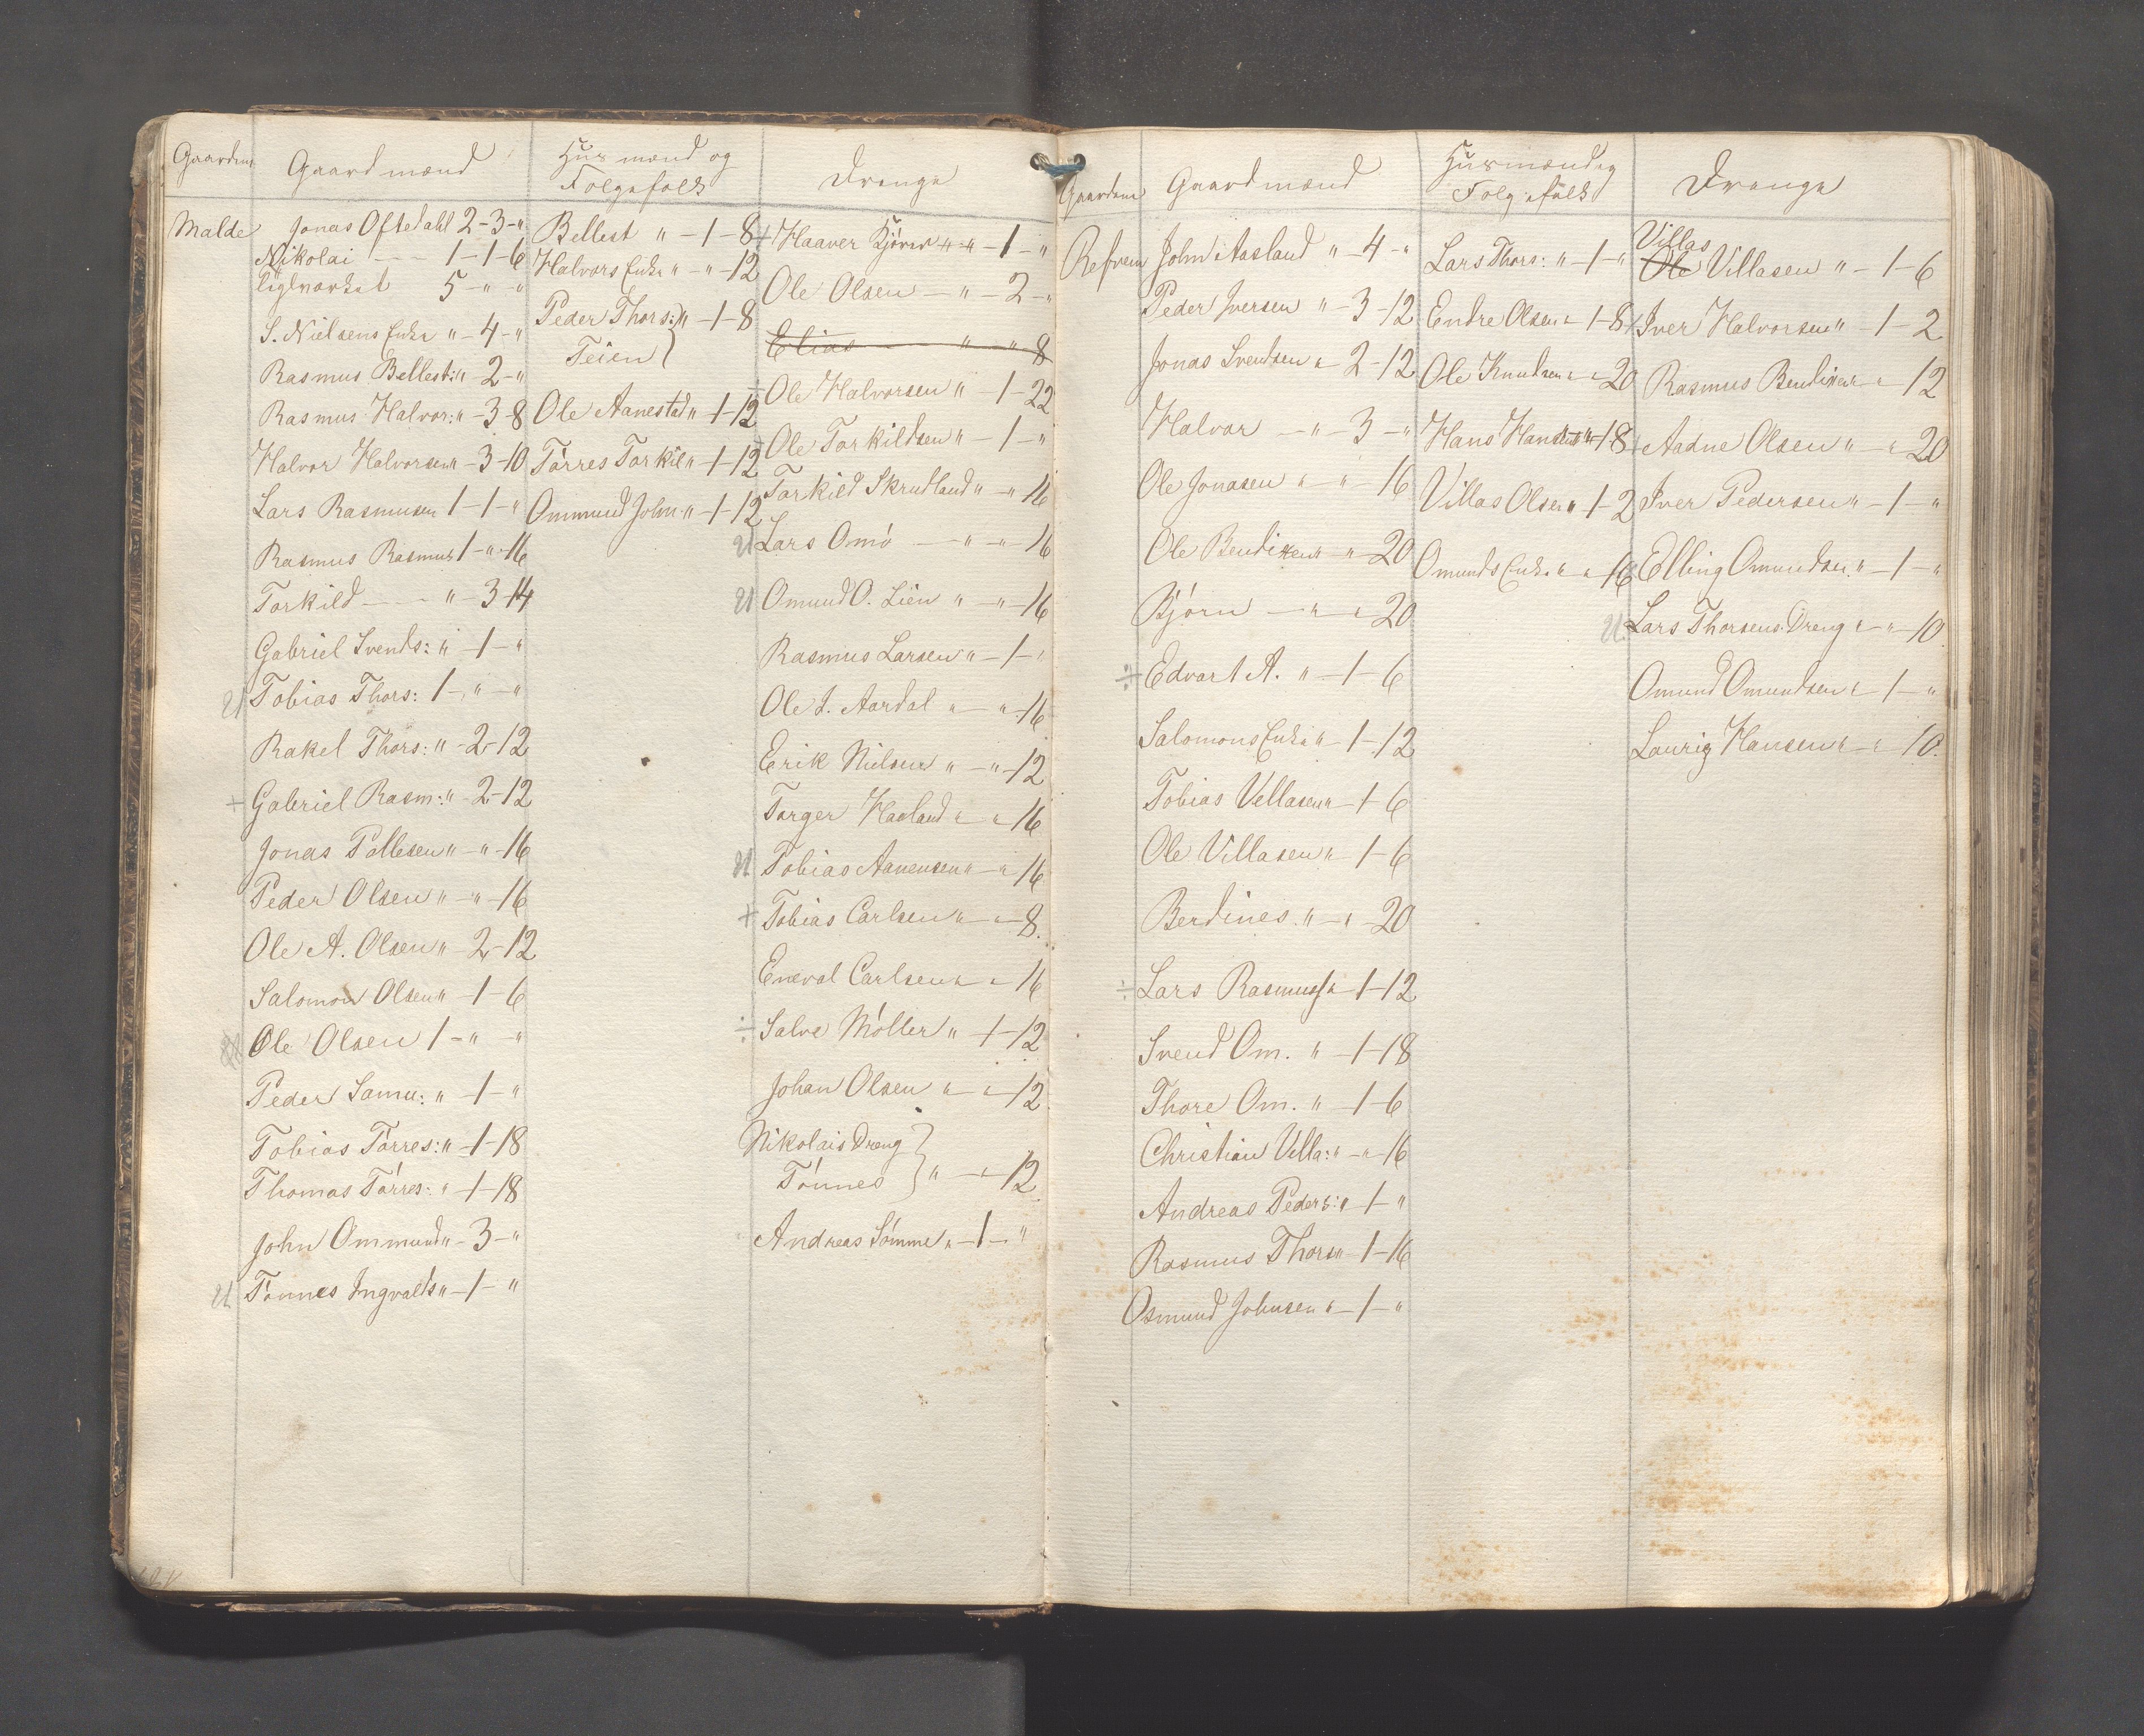 Gaardene
Gaardmænd
Husmænd og
Folgefolk
Drenge
Malde
Jonas Oftedahl 2-3-"
Nikolai - - 1-1-6
Teglværket 5-"-"
S. Nielsens Enke "-4-"
Rasmus Bellest: "-2-"
Rasmus Halvor: "-3-8
Halvor Halvorsen "-3-10
Lars Rasmusen 1-1-"
Rasmus Rasmus 1-"-16
Torkild - - "-3-14
Gabriel Svends: "-1-"
U Tobias Thors: 1-"-"
Rakel Thors: "-2-12
+ Gabriel Rasm: "-2-12
Jonas Pallesen "-"-16
Peder Olsen "-"-16
Ole A. Olsen "-2-12
Salomon Olsen "-1-6
Ole Olsen 1-"-"
Peder Samu: "-1-"
Tobias Törres: "-1-18
Thomas Törres: "-1-18
John Ommund "-3-"
U Tönnes Ingvalds "-1-"
Bellest "-1-8
Halvors Enke "-"-12
Peder Thors: } "-1-8
Teien
Ole Aanestad "-1-12
Törres Torkil "-1-12
Ommund John "-1-12
+ Haaver Björn "-1-"
Ole Olsen - "-2-"
Elias - "-"8
÷ Ole Halvorsen "-1-22
÷ Ole Torkildsen "-1-"
Torkild Skrudland "-"16
U Lars Omö - "-"-16
U Omund O. Lien "-"-16
Rasmus Larsen "-1-"
Ole L. Aardal "-"-16
Erik Nielsen "-"-12
Torger Haaland "-"16
U Tobias Aanensen "-"16
+ Tobias Carlsen "-"-8.
Eneval Carlsen "-"16
÷ Salve Möller "-1-12
Johan Olsen "-"-12
Nikolais Dreng
Tönnes } "-"-12
Andreas Sömme "-1-"
Gaardene
Gaardmænd
Husmænd og
Folgefolk
Drenge
Refvem
John Aasland "-4-"
Peder Iversen "-3-12
Jonas Svendsen "-2-12
Halvor - "-3-"
Ole Jonasen "-"-16
Ole Bendixen "-"-20
Björn - "-"-20
÷ Edvart A. "-1-6
Salomons Enke "-1-12
Tobias Vellasen "-1-6
Ole Villasen "-1-6
Berdines. "-"-20
÷ Lars Rasmuss "-1-12
Svend Om. "-1-18
Thore Om. "-1-6
Christian Villa: "-"-16
Andreas Peders: "-1-"
Rasmus Thors "-1-16
Osmund Johnsen "-1-"
Lars Thors: "-1-"
Endre Olsen "-1-8
Ole Knudsen "-"20
Hans Hansen "-1-8
Villas Olsen "-1-2
Omunds Enke "-"-16
Villas
Ole Villasen "-1-6
Iver Halvorsen "-1-2
Rasmus Bendixen "-"-12
Aadne Olsen "-"20
Iver Pedersen "-1-"
Elling Omundsen "-1-"
U. Lars Thorsens Dreng "-"-10
Omund Omundsen "-1-"
Lauriz Hansen "-"-10.